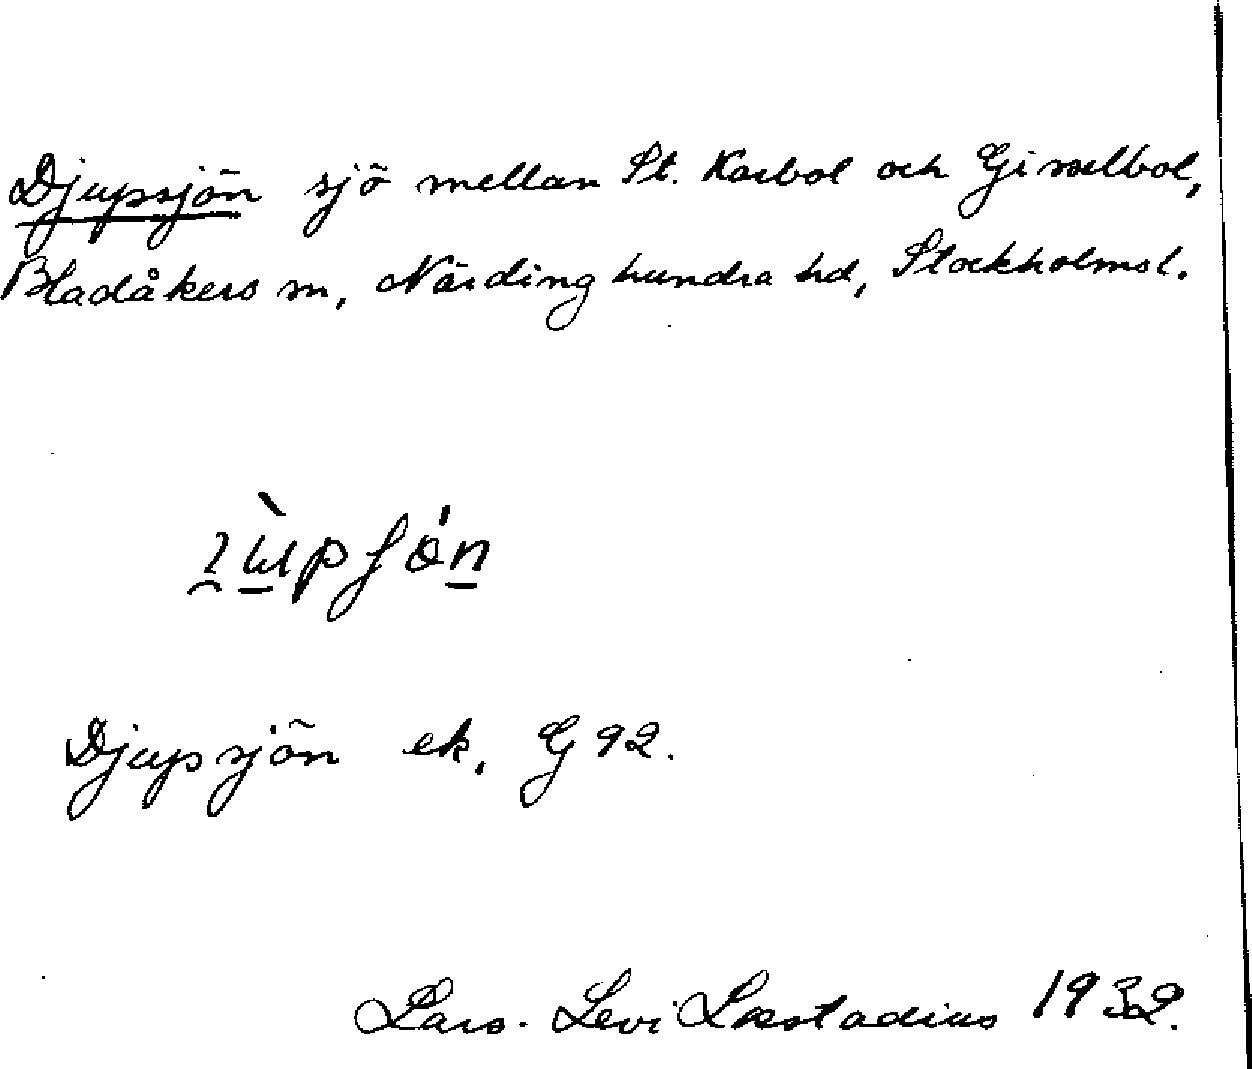 Djupsjön sjö mellan St. Karbol och Gisselbol,
Bladåkers sn, Närdinghundra hd, Stockholms l.
Djupsjön ek. G 92.
Lars-Levi Læstadius 1932.